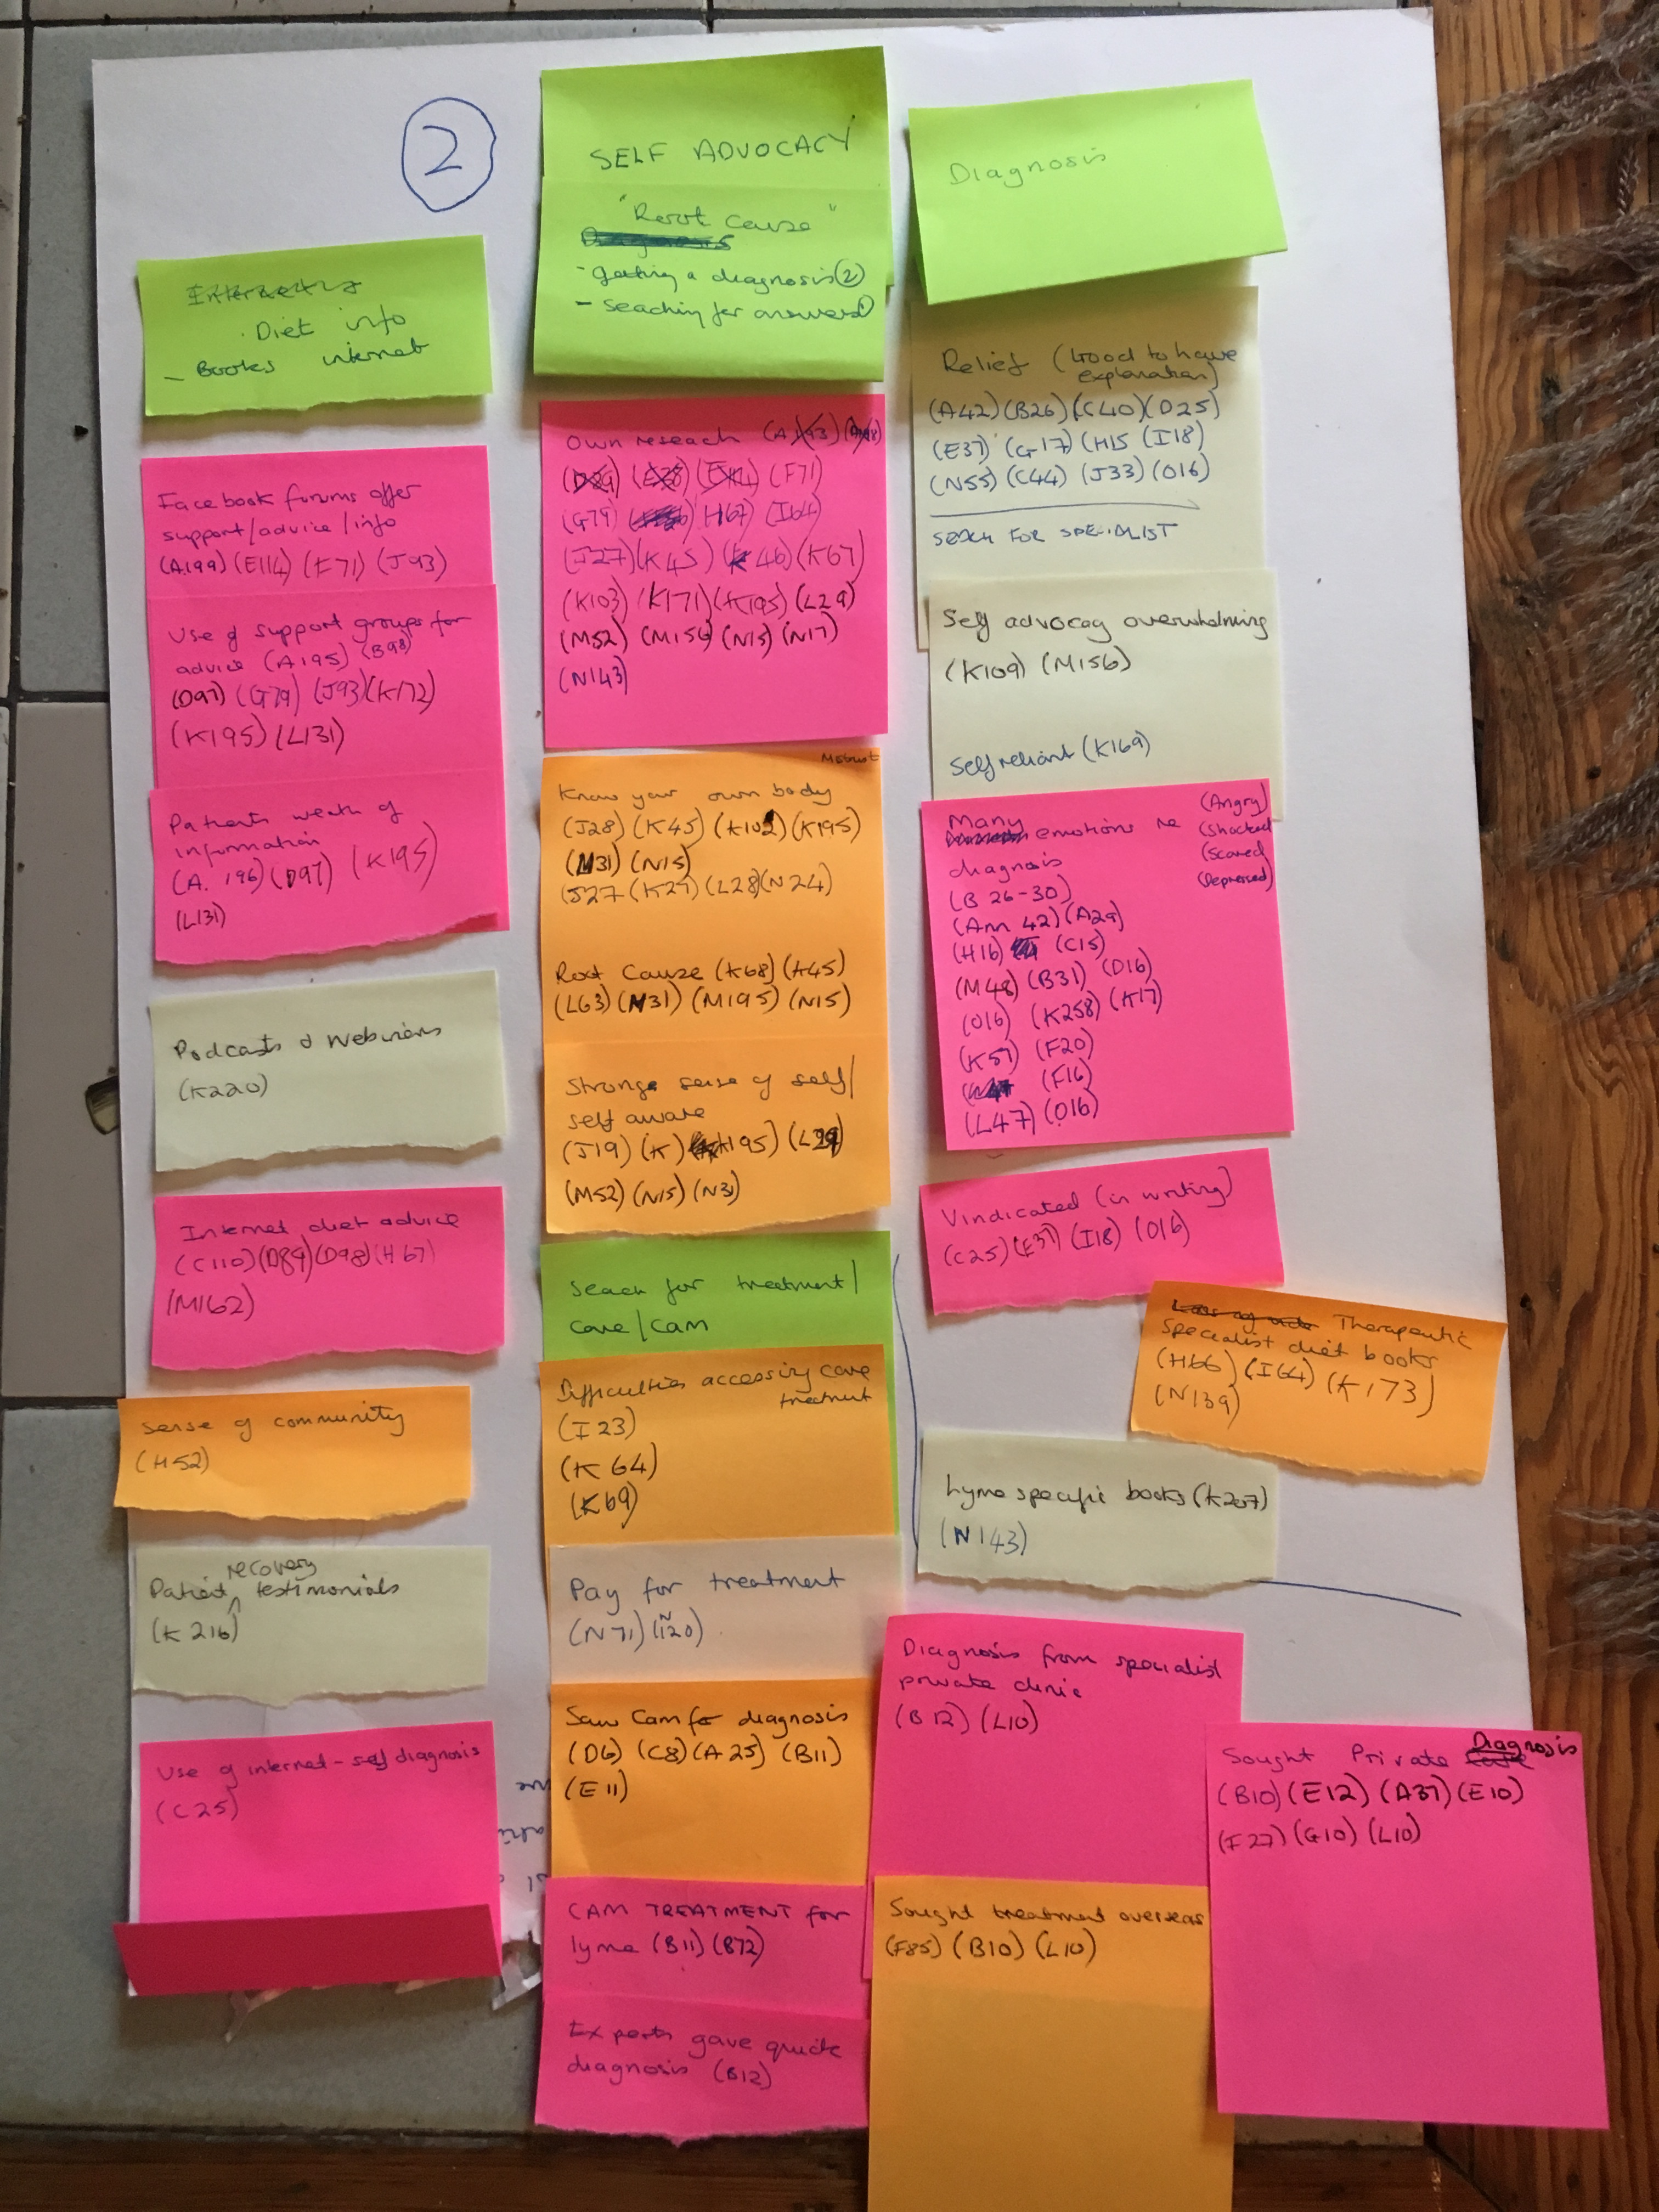 2
Diet info
- Books internet
Facebook forums offer
support/advice/info
(A199) (E114) (F71) (J93)
Use of support groups for
advice (A195) (B98)
(D97) (G79) (J93) (K172)
(K195) (L131)
Patients wealth of
information
(A. 196) (D97) (K195)
(L131)
Podcasts & Webinars
(K220)
Internet diet advice
(C110) (D89) (D98) (H67)
(M162)
Sense of community
(H52)
recovery
Patient testimonials
(K216)
Use of internet - self diagnosis
(C25)
SELF ADVOCACY
"Root cause"
- getting a diagnosis (2)
- seaching for answers
Own reseach
(F71)
(G79) (H67) (I64)
(J27) (K45) (K46) (K67)
(K103) (K171) (K195) (L29)
(M52) (M156) (N15) (N17)
(N143)
Know your own body
(J28) (K45) (K102) (K195)
(N15)
(J27 (K27) (L28) (N24)
Root Cause (K68) (K45)
(L63) (N31) (M195) (N15)
Stronge sense of self/
self aware
(J19) (K) 195)
(M52) (N15) (N31)
Seach for treatment/
care/cam
Difficulties accessing care
treatment
(I23)
(K64)
(K69)
Pay for treatment
(N71) (I20)
Saw Cam for diagnosis
(D6) (C8) (A25) (B11)
(E11)
CAM TREATMENT for
lyme (B11) (B72)
Experts gave quick
diagnosis (B12)
Diagnosis
Relief (Good to have
explanation)
(A42) (B26) (C40) (D25)
(E37) (G17) (H15 (I18)
(N55) (C44) (J33) (O16)
SEACH FOR SPECIALIST
Self advocacy overwhelming
(K109) (M156)
Self reliant (K169)
Many emotions re
diagnosis
(Angry)
(Shocked
(Scared)
(Depressed)
(B 26-30)
(Ann 42) (A29)
(H16) (C15)
(M48) (B31) (D16)
(O16) (K258) (K17)
(K57) (F20)
(F16)
(L47) (O16)
Vindicated (in writing)
(C25) (E37) (I18) (O16)
Therapeutic
Specialist diet books
(H66) (I64) (K173)
(N139)
Lyme specific books (K207)
(N143)
Diagnosis from specialist
private clinic
(B12) (L10)
Sought Private Diagnosis
(B10) (E12) (A37) (E10)
(F27) (G10) (L10)
Sought treatment overseas
(F85) (B10) (L10)